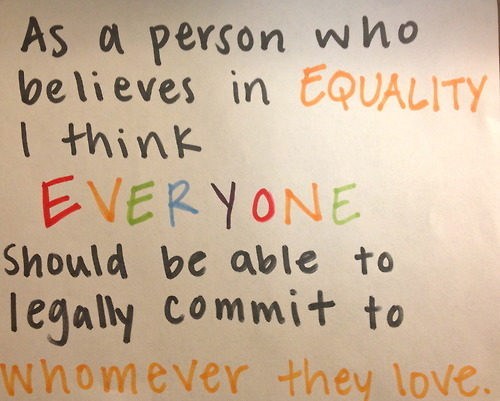 As a person who
believes in EQUALITY
I think
EVERYONE
Should be able to
legally commit to
whomever they love.